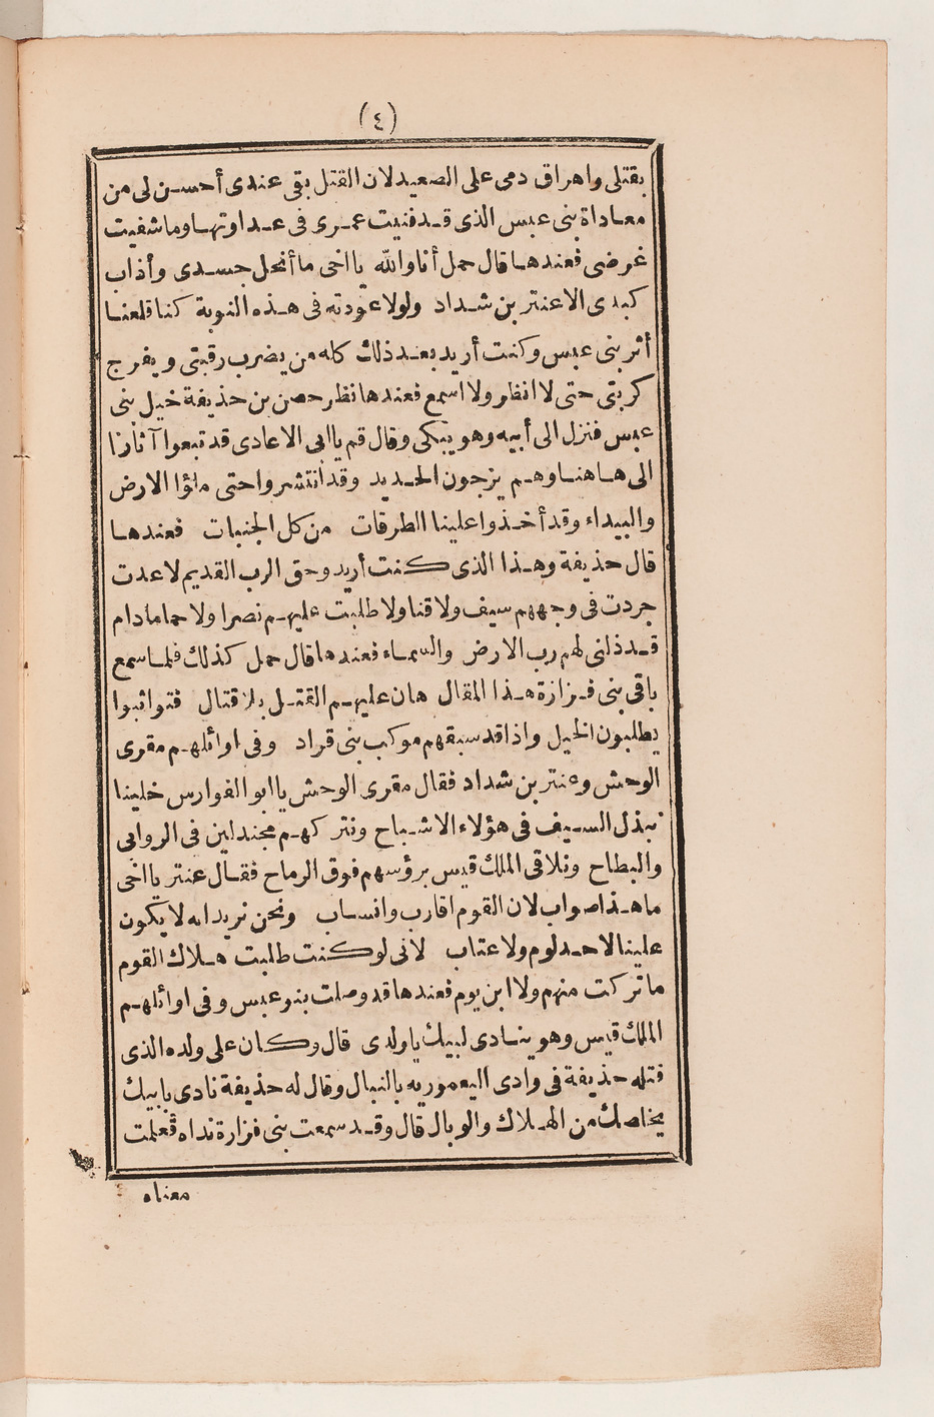 (٤)
بقتلى واهراق دمى على الصعيد لان القتل بقى عندى أحسن لى من
معاداة بنى عبس الذى قد فنيت عمرى فى عداوتها وما شفيت
غرضى فعندها قال حمل أنا والله يا اخى ما أنحل جسدى وأذاب
كبدى الا عنتر بن شداد ولولا عوّدته فى هذه النوبة كنا قلعنا
أثر بنى عبس وكنت أريد بعد ذلك كله من يضرب رقبتى ويفرج
كربتى حتى لا انظر ولا اسمع فعندها نظر حصن بن حذيفة خيل بنى
عبس فنزل الى أبيه وهو يبكى وقال قم يا ابى الاعادى قد تبعوا آثارنا
الى هاهنا وهم يزجون الحديد وقد انتشروا حتى ملؤا الارض
والبيداء وقد أخذوا علينا الطرقات من كل الجنبات فعندها
قال حذيفة وهذا الذى كنت أريد وحق الرب القديم لا عدت
جردت فى وجههم سيف ولا قنا ولا طلبت عليهم نصرا ولا حما مادام
قد ذلنى لهم رب الارض والسماء فعندها قال حمل كذلك فلما سمع
باقى بنى فزارة هذا المقال هان عليهم القتل بلا قتال فتواثبوا
يطلبون الخيل واذا قد سبقهم موكب بنى قراد وفى اوائلهم مقرى
الوحش وعنتر بن شداد فقال مقرى الوحش يا ابو الفوارس خلينا
نبذل السيف فى هؤلاء الاشباح ونتركهم مجندلين فى الروابى
والبطاح ونلاقى الملك قيس برؤسهم فوق الرماح فقال عنتر يا اخى
ما هذا صواب لان القوم اقارب وانساب ونحن نريد انه لا يكون
علينا لاحد لوم ولا عتاب لانى لو كنت طلبت هلاك القوم
ما تركت منهم ولا ابن يوم فعندها قد وصلت بنو عبس وفى اوائلهم
الملك قيس وهو ينادى لبيك يا ولدى قال وكان على ولده الذى
قتله حذيفة فى وادى اليعموريه بالنبال وقال له حذيفة نادى يا بيك
يخلصك من الهلاك والوبال قال وقد سمعت بنى فزارة نداه فعلمت
معناه